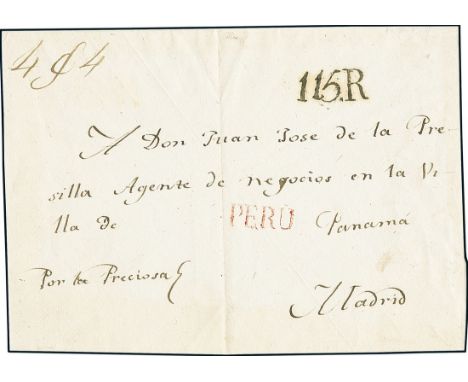 4 & 4
115.R
A Don Juan Jose de la Pre-
silla Agente de negocios en la Vi-
lla de
PERU
Panamá
Por la Preciosa
Madrid